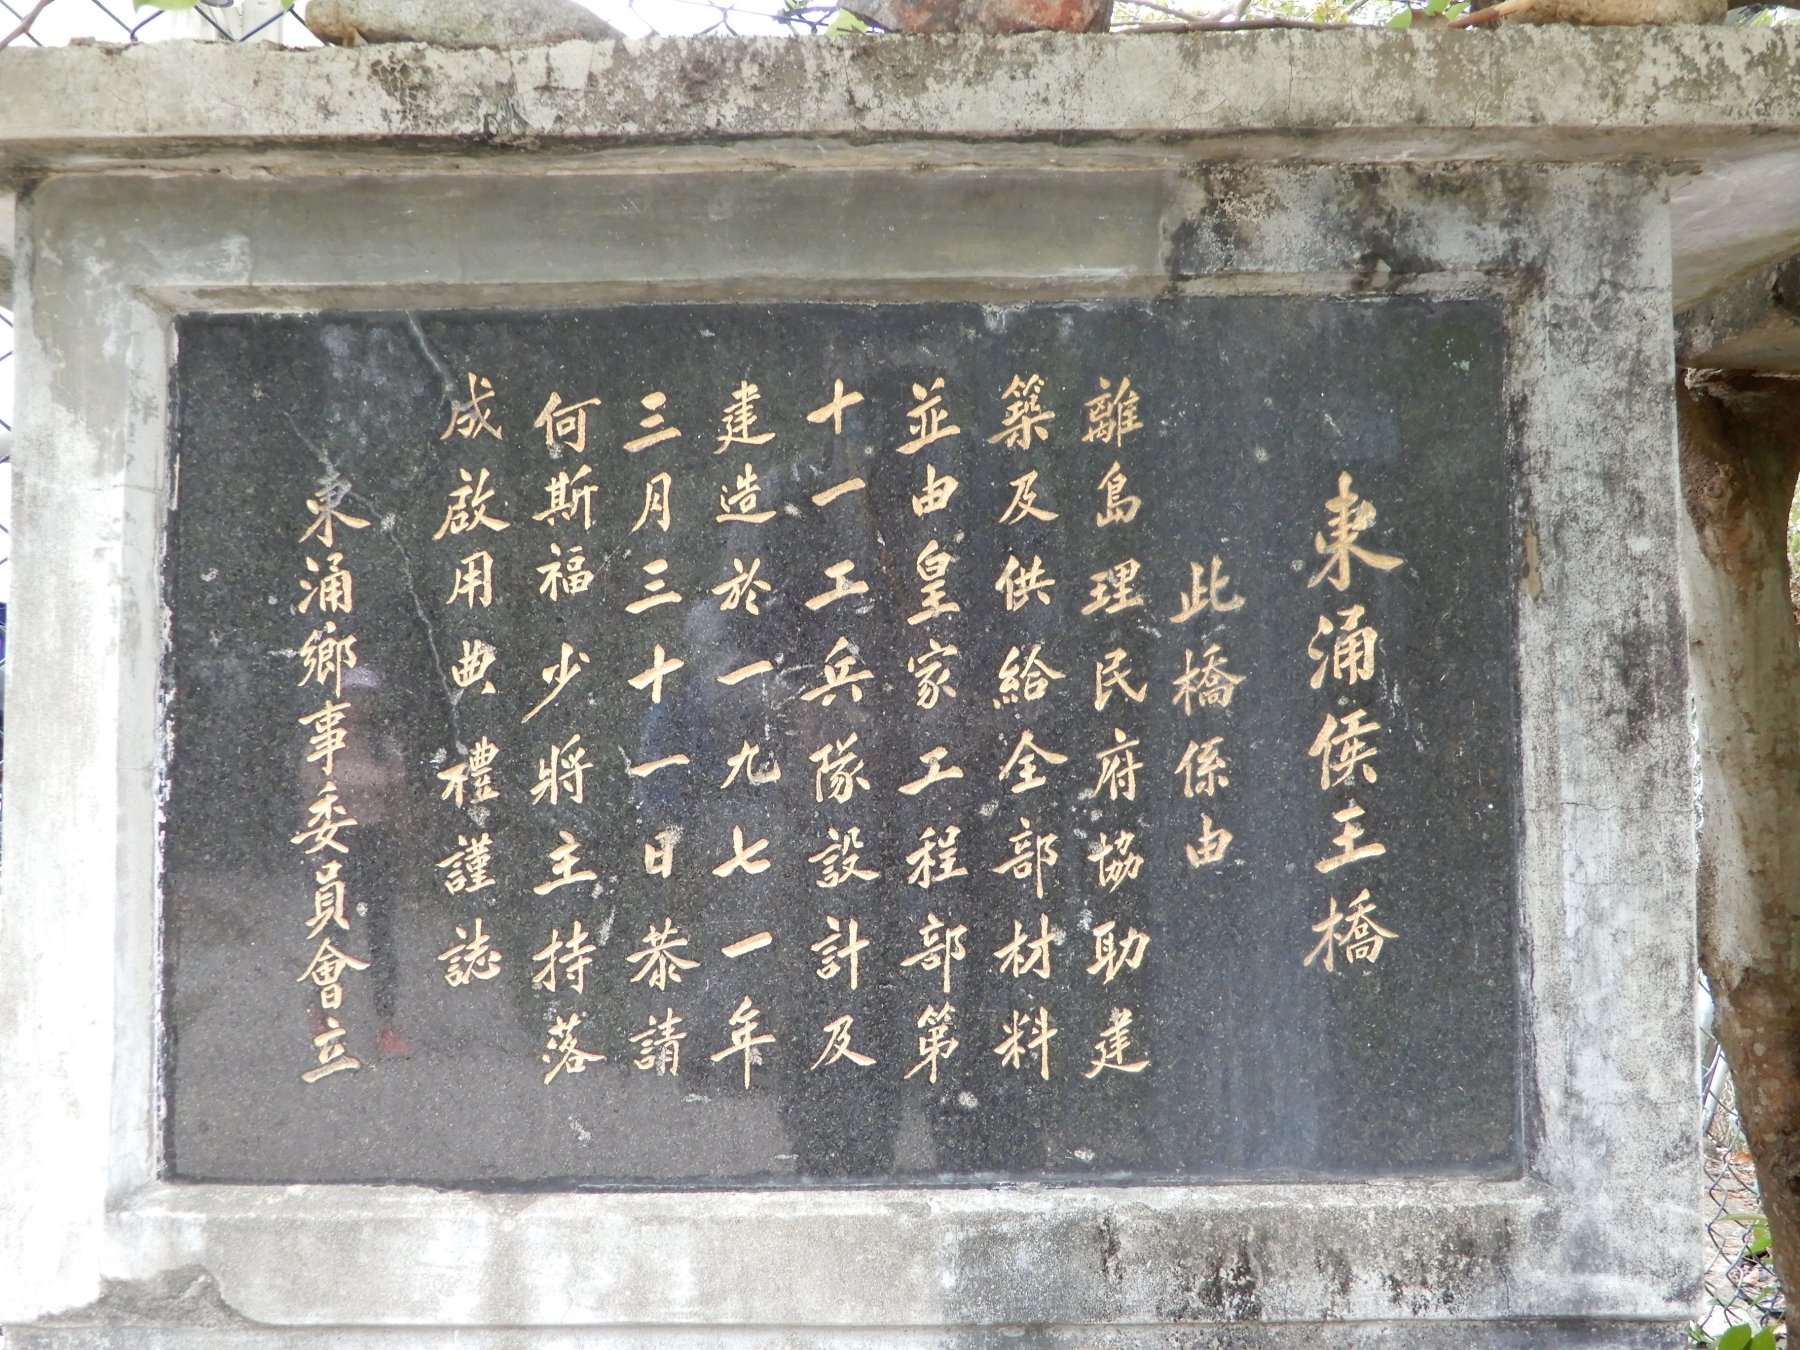 東涌侯王橋
此橋係由
離島理民府協助建
築及供給全部材料
並由皇家工程部第
十一工兵隊設計及
建造於一九七一年
三月三十一日恭請
何斯福少將主持落
成啟用典禮謹誌
東涌鄉事委員會立